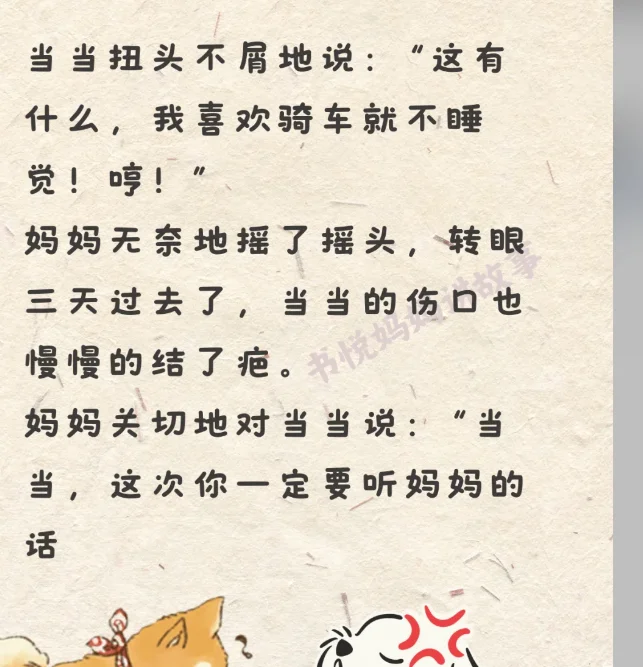 当当扭头不屑地说：“这有
什么，我喜欢骑车就不睡
觉！哼！”
妈妈无奈地摇了摇头，转眼
三天过去了，当当的伤口也
慢慢的结了疤。
妈妈关切地对当当说：“当
当，这次你一定要听妈妈的
话
书悦妈妈讲故事